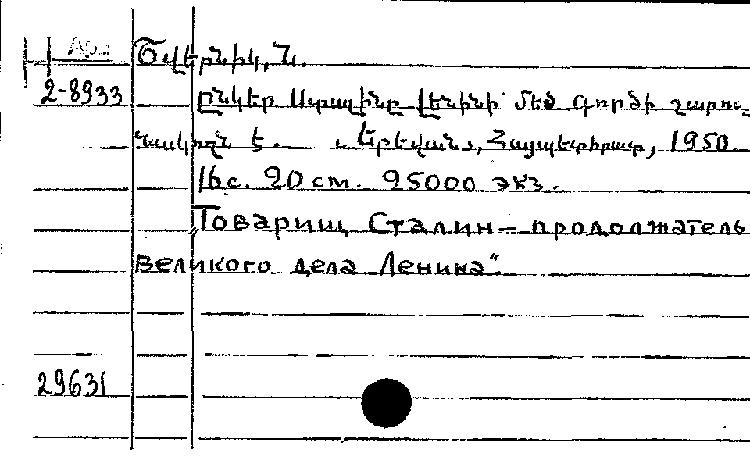 Арм
Շվերնիկ, Ն.
2-8933
Ընկեր Ստալինը Լենինի մեծ գործի շարու-
նակողն է. Երեվան, Հայպետհրատ, 1950.
16с. 20 cm. 25000 экз.
Товарищ Сталин – продолжатель
великого дела Ленина".
29631